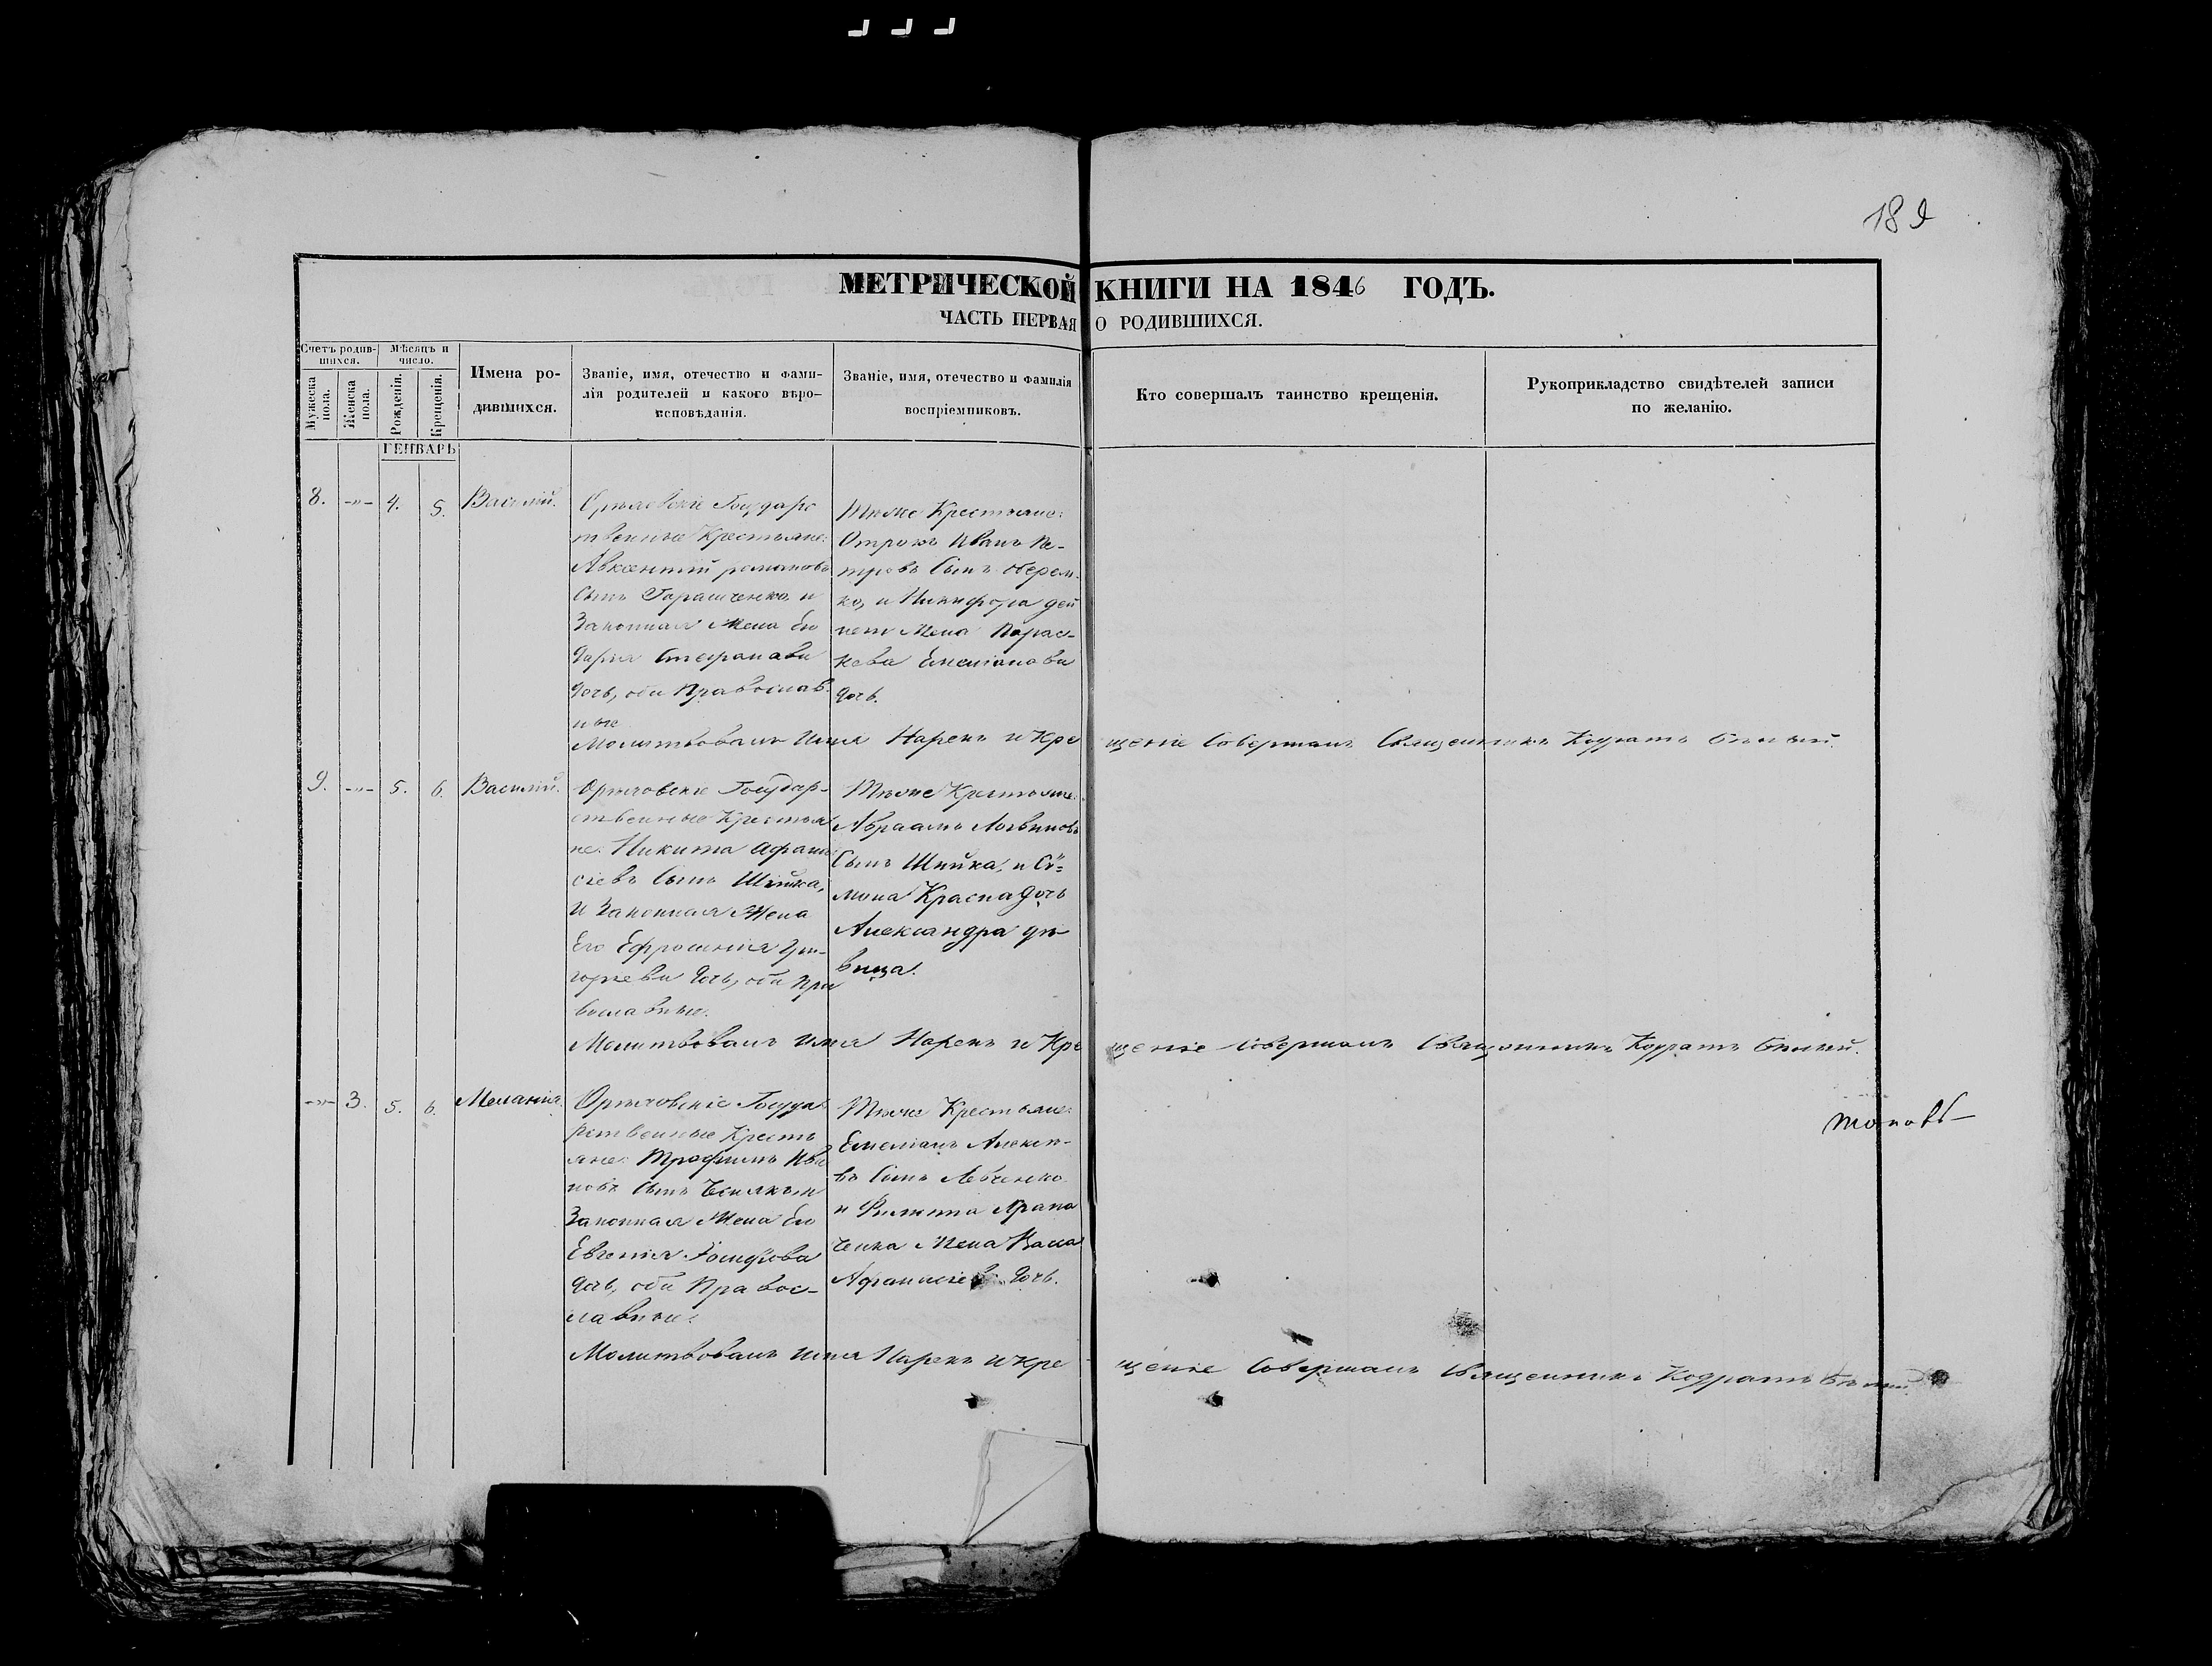 189
МЕТРИЧЕСКОЙ КНИГИ НА 1846 ГОДЪ.
ЧАСТЬ ПЕРВАЯ О РОДИВШИХСЯ.
Счетъ родив-
шихся.
Мужеска
пола.
Женска
пола.
Мѣсяцъ и
число.
Рожденія.
Крещенія.
Имена ро-
дившихся.
Званіе, имя, отечество и фами-
лія родителей и какого вѣро-
исповѣданія.
Званіе, имя, отечество и фамилія
воспріемниковъ.
Кто совершалъ таинство крещенія.
Рукоприкладство свидѣтелей записи
по желанію.
ГЕНВАРЬ
8. -„- 4. 5. Василій.
Орѣховскіе Государс
твенные Крестьяне:
Авксентій романовъ
Сынъ Геращенко и
Законная Жена Его
Дарія Стефанова
Дочь, оба Православ
ные
Тѣже Крестьяне:
Отрокъ Иванъ Пе-
тровъ Сынъ
ко, и Никифора дей
Жена Парас-
кева Емеліанова
Дочь.
Молитвовалъ Имя Нарекъ и Кре щеніе Совершалъ Священникъ Кодратъ Бѣлый.
9. -„- 5. 6. Василій.
Орѣховскіе Государ-
ственные Крестья
не: Никита Афана
сіевъ Сынъ Шейка,
И Законная Жена
Его Ефросинія Гри-
горіева Дочь, оба Пра
вославные.
Тѣже Крестьяне:
Авраамъ Логвиновъ
Сынъ Шейка, и Сѵ-
мона Красна Дочь
Александра дѣ-
вица.
Молитвовалъ Имя Нарекъ и Кре щеніе Совершалъ Священникъ Кодратъ Бѣлый.
-„- 3. 5. 6. Меланія.
Орѣховскіе Госуда
рственные Кресть
яне: Трофимъ Ива
новъ Сынъ
Законная Жена Его
Евгенія Іосифова
Дочь, оба Правос-
лавные.
Тѣже Крестьяне:
Емеліанъ Алексѣ-
въ Сынъ Левченко
и Филиппа
ченка Жена Васса
Афанасіева Дочь.
Молитвовалъ Имя Нарекъ и Кре щеніе Совершалъ Священникъ Кодратъ Бѣлый.